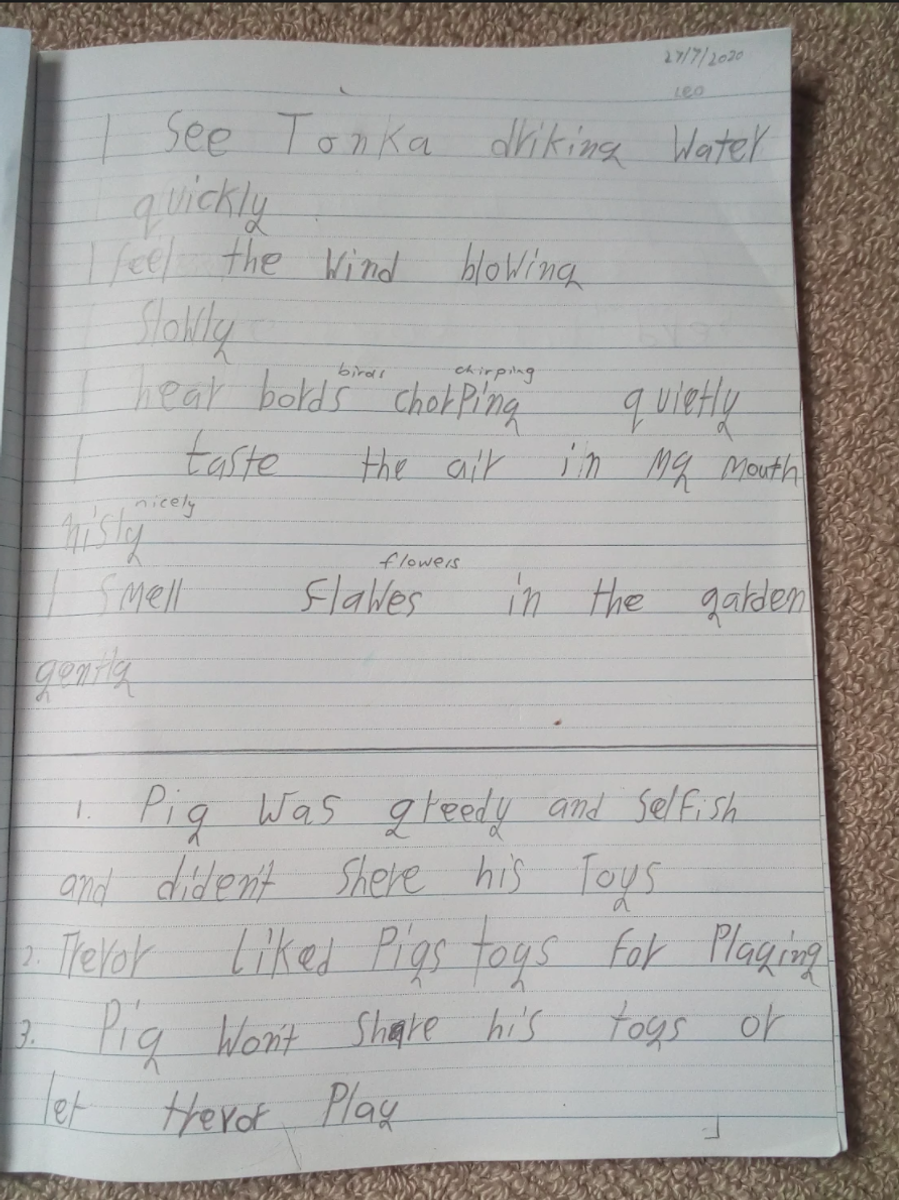 27/7/2020
Leo
I See Tonka driking Water
quickly
I feel the Wind blowing
Slowly
birds chirping
I hear bords chorPing quietly
I taste the air in my mouth
nicely
nisty
flowers
I Smell FlaWes in the garden
gently
1. Pig Was greedy and SelFish
and dident Shere his Toys
2. Trevor liked Pigs toys For Playing
3. Pig Won't Share his toys or
let trevor Play